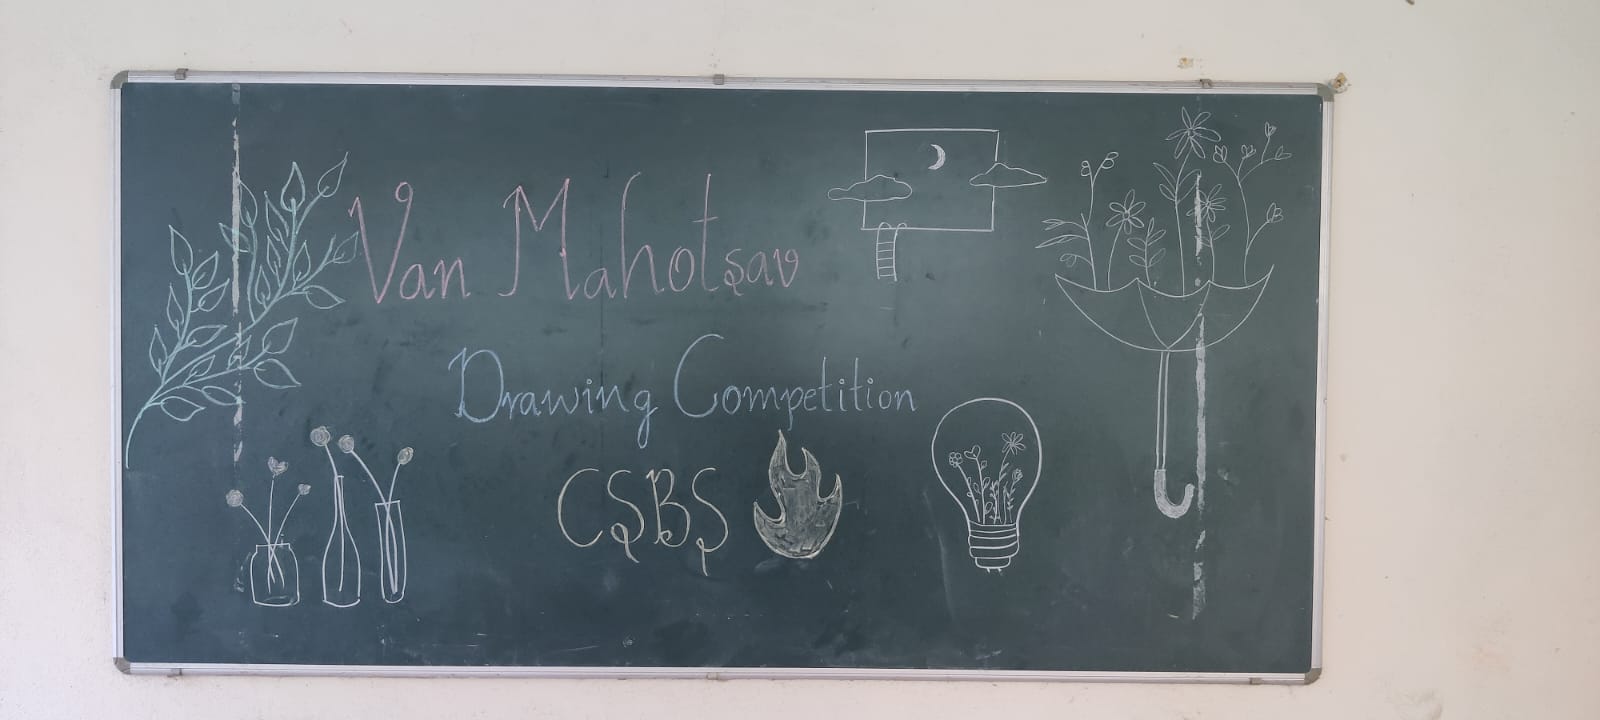 Van Mahotsav
Drawing Competition
CSBS